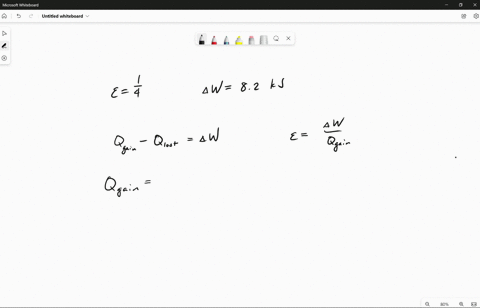 Microsoft Whiteboard
Untitled whiteboard
ε = 1/4 ΔW = 8.2 kJ
Q_gain - Q_lost = ΔW ε = ΔW/Q_gain
Q_gain =
80%